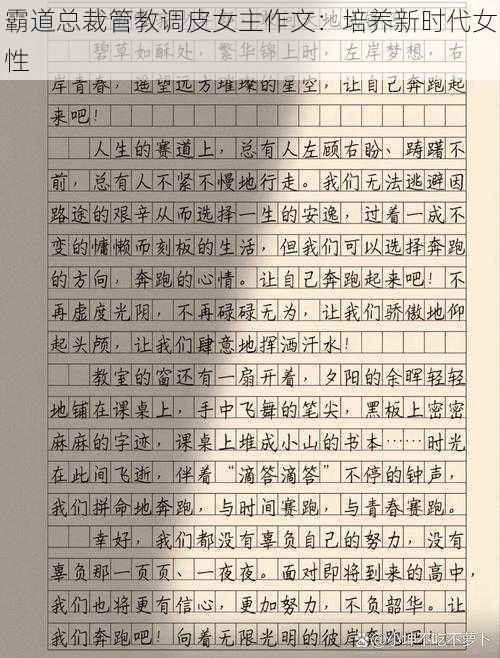 霸道总裁管教调皮女主作文：培养新时代女
性
碧草如酥处，繁华锦上时，左岸梦想，右
岸青春，遥望远方璀璨的星空，让自己奔跑起
来吧！
人生的赛道上，总有人左顾右盼、踌躇不
前，总有人不紧不慢地行走。我们无法逃避因
路途的艰辛从而选择一生的安逸，过着一成不
变的慵懒而刻板的生活，但我们可以选择奔跑
的方向，奔跑的心情。让自己奔跑起来吧！不
再虚度光阴，不再碌碌无为，让我们骄傲地仰
起头颅，让我们肆意地挥洒汗水！
教室的窗还有一扇开着，夕阳的余晖轻轻
地铺在课桌上，手中飞舞的笔尖，黑板上密密
麻麻的字迹，课桌上堆成小山的书本……时光
在此间飞逝，伴着“滴答滴答”不停的钟声，
我们拼命地奔跑，与时间赛跑，与青春赛跑。
幸好，我们都没有辜负自己的努力，没有
辜负那一页页、一夜夜。面对即将到来的高中，
我们也将更有信心，更加努力，不负韶华。让
我们奔跑吧！向着无限光明的彼岸奔跑
不吃不萝卜